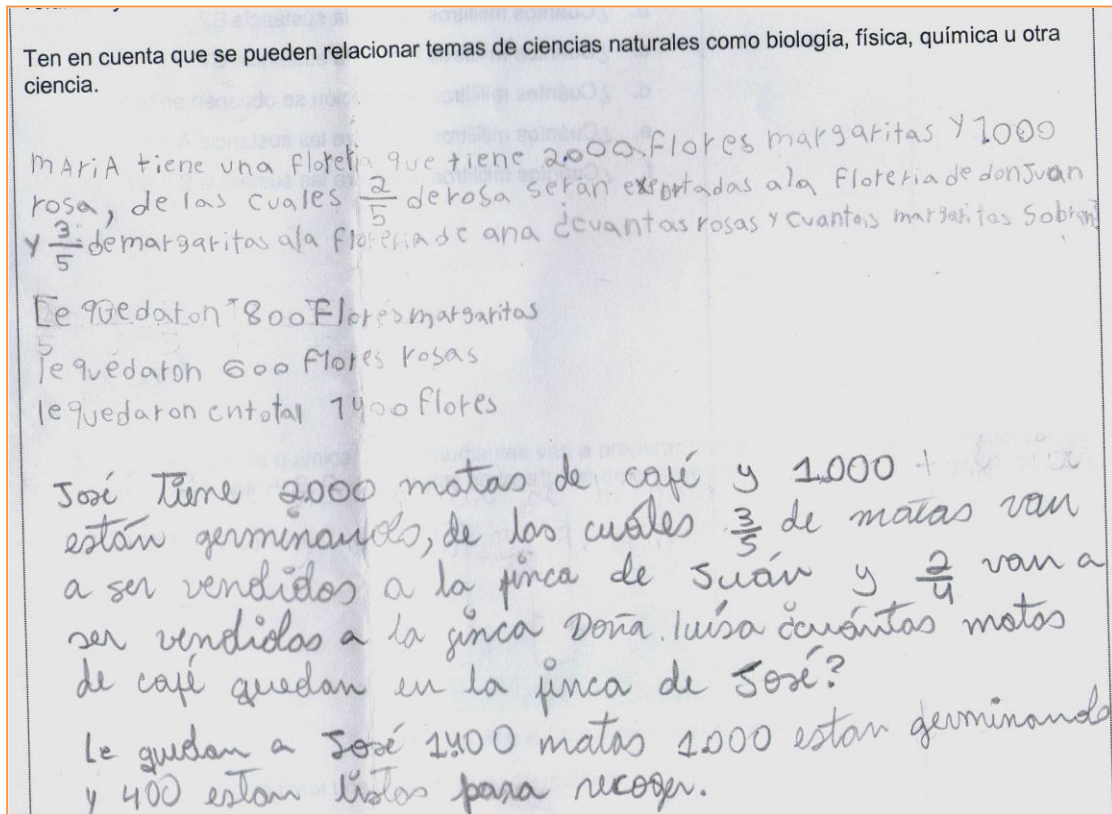 Ten en cuenta que se pueden relacionar temas de ciencias naturales como biología, física, química u otra
ciencia.
mAriA tiene una floreria que tiene 2.000 flores margaritas Y 1000
rosa, de las cuales 2/5 de rosa serán exportadas ala Floreria de don Juan
Y 3/5 de margaritas ala floreria de ana ¿cuantas rosas Y cuantas margaritas Sobran?
Le quedaron 800 Flores margaritas
le quedaron 600 flores rosas
le quedaron en total 1400 flores
José Tiene 2000 matas de café y 1.000
están germinando, de las cuales 3/5 de matas van
a ser vendidos a la finca de Juán y 2/4 van a
ser vendidas a la finca Doña. luisa ¿cuántas matas
de café quedan en la finca de José?
Le quedan a José 1400 matas 1000 estan germinando
y 400 estan listas para recoger.